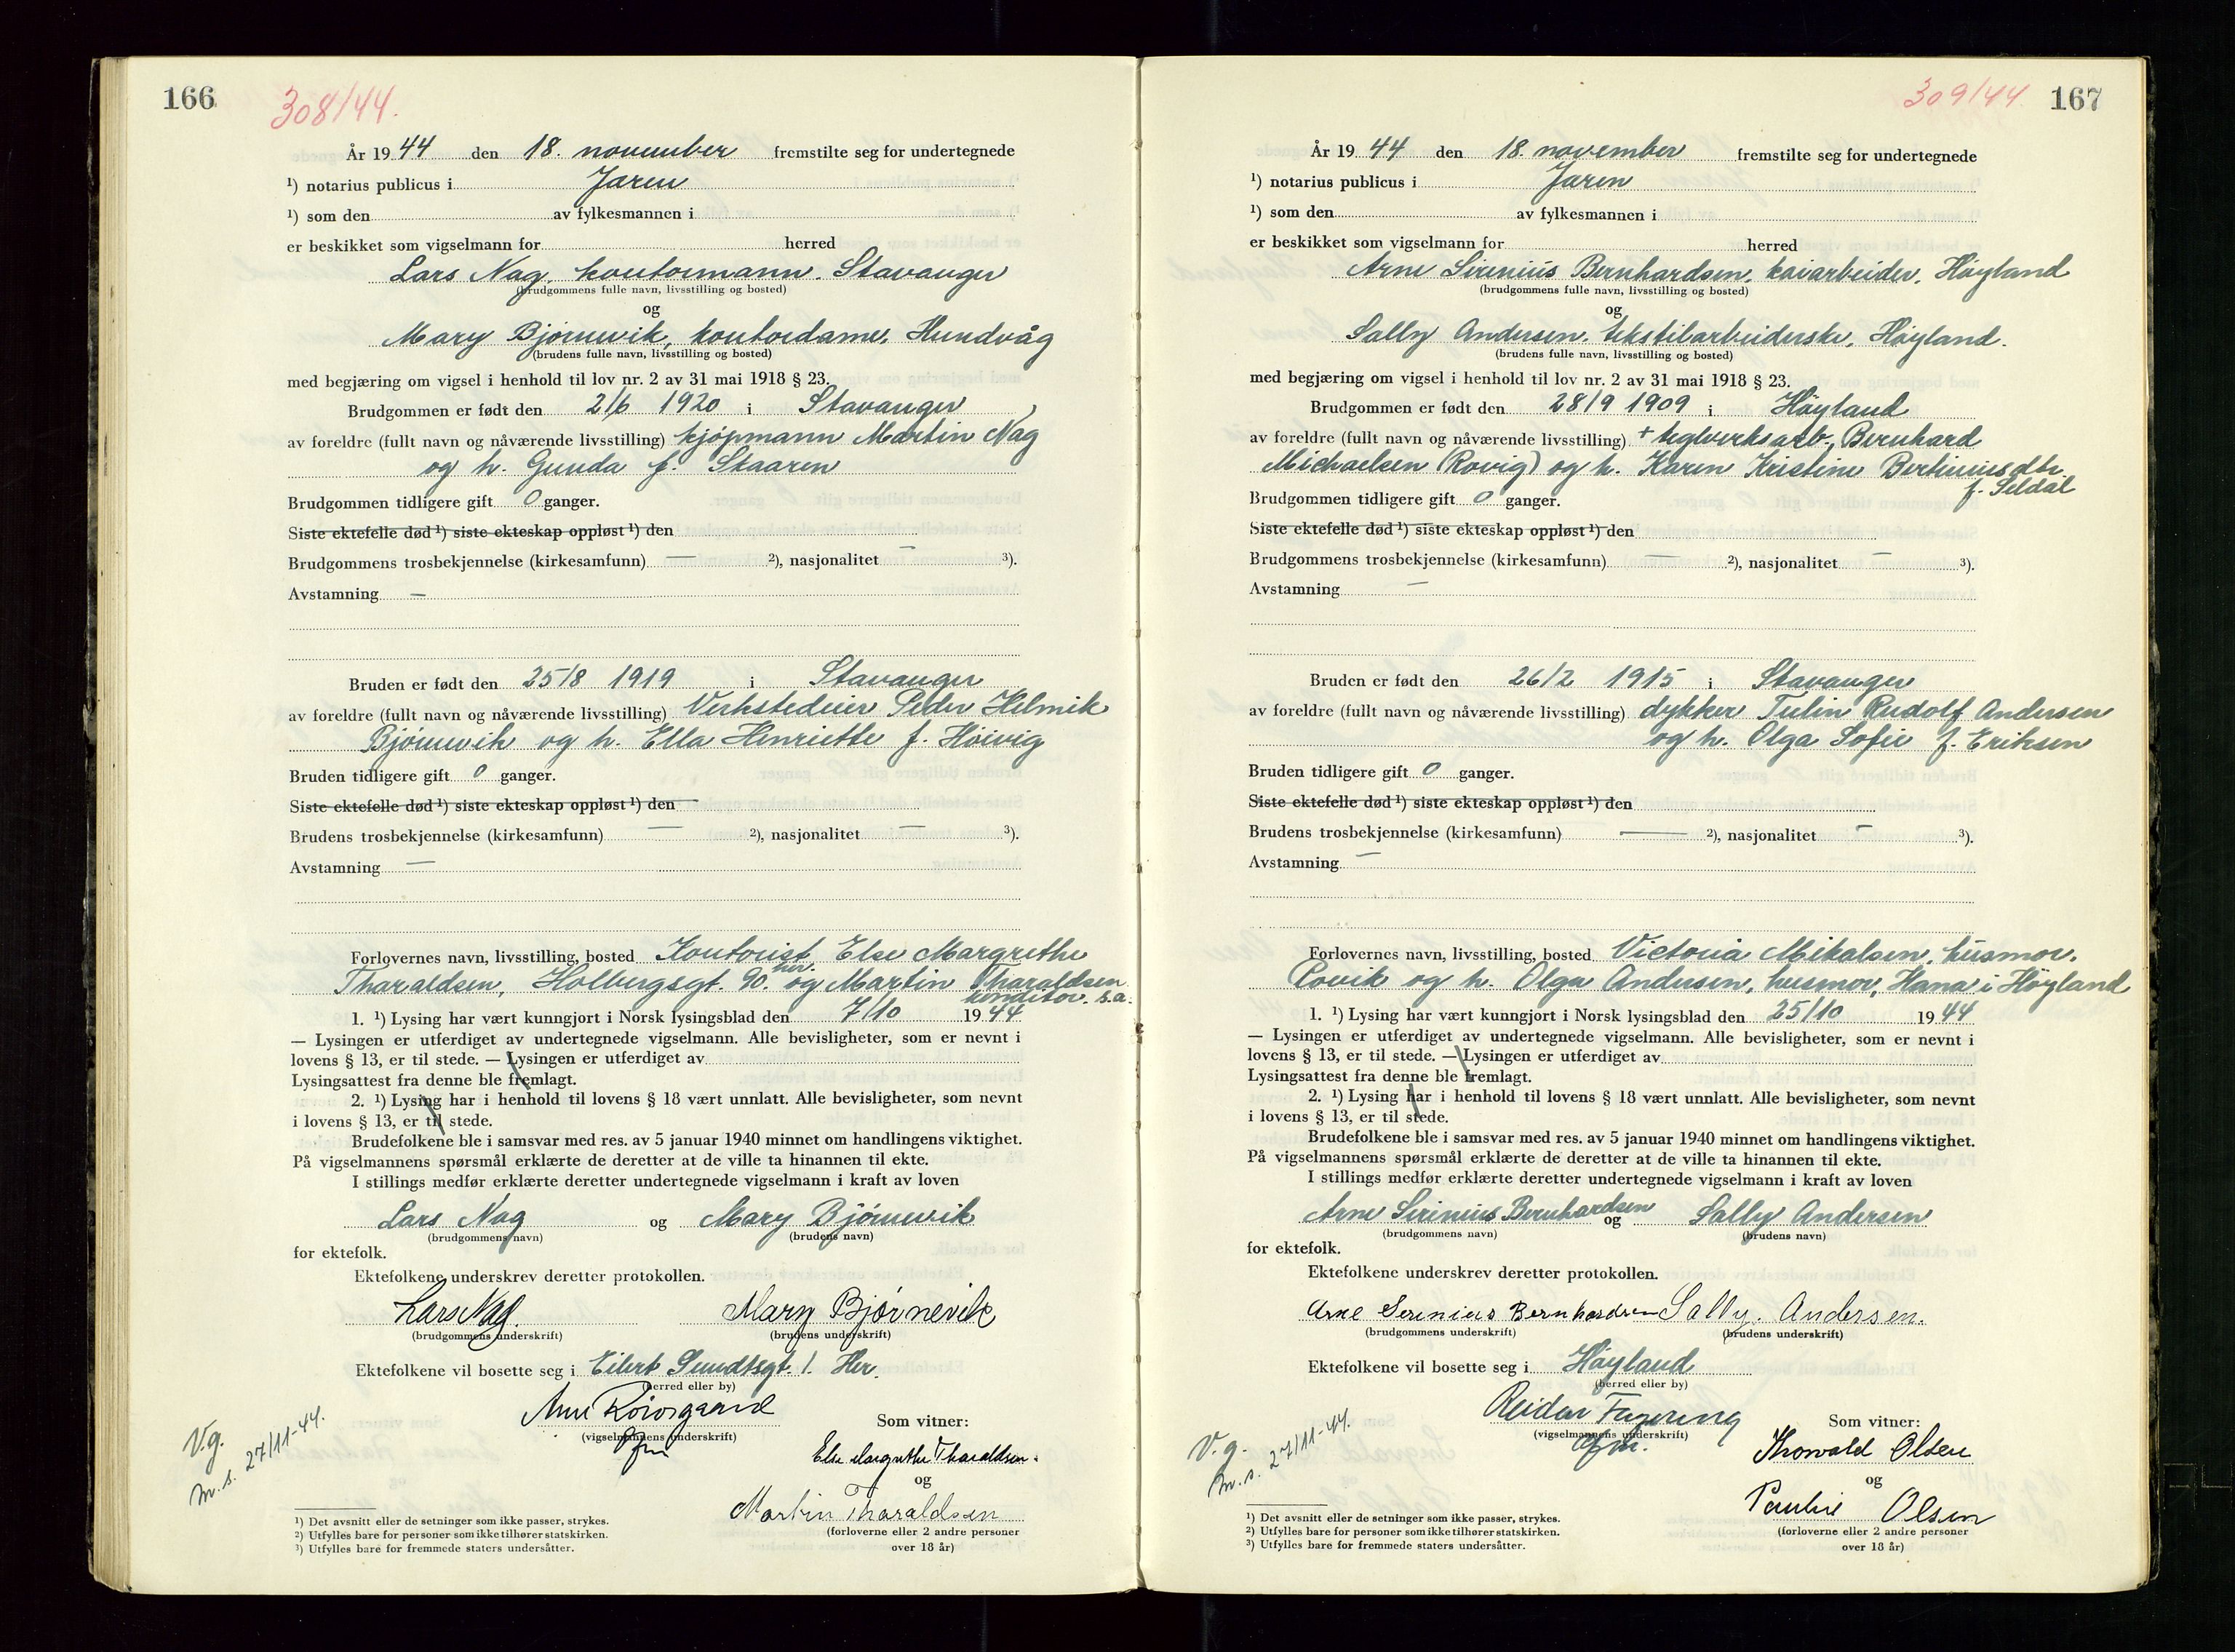 166
308/44.
År 19 44 den 18. november fremstilte seg for undertegnede
¹) notarius publicus i Jæren
¹) som den av fylkesmannen i
er beskikket som vigselmann for herred
Lars Nag, kontormann. Stavanger
(brudgommens fulle navn, livsstilling og bosted)
og
Mary Bjørnevik, kontordame, Hundvåg
(brudens fulle navn, livsstilling og bosted)
med begjæring om vigsel i henhold til lov nr. 2 av 31 mai 1918 § 23.
Brudgommen er født den 2/6 1920 i Stavanger
av foreldre (fullt navn og nåværende livsstilling) kjøpmann Martin Nag
og h. Gunda f. Skaaren
Brudgommen tidligere gift 0 ganger.
Siste ektefelle død ¹) siste ekteskap oppløst ¹) den
Brudgommens trosbekjennelse (kirkesamfunn) — ²), nasjonalitet — ³).
Avstamning —
Bruden er født den 25/8 1919 i Stavanger
av foreldre (fullt navn og nåværende livsstilling) Verkstedeier Peder Helmik
Bjørnevik og h. Ella Henriette f. Høivig
Bruden tidligere gift 0 ganger.
Siste ektefelle død ¹) siste ekteskap oppløst ¹) den
Brudens trosbekjennelse (kirkesamfunn) — ²), nasjonalitet — ³).
Avstamning —
Forlovernes navn, livsstilling, bosted Kontorist Else Margrethe
Tharaldsen, Holbergsgt. 90. her. og Martin Tharaldsen
konditor. s.a.
1. ¹) Lysing har vært kunngjort i Norsk lysingsblad den 7/10 19 44
— Lysingen er utferdiget av undertegnede vigselmann. Alle bevisligheter, som er nevnt i
lovens § 13, er til stede. — Lysingen er utferdiget av
Lysingsattest fra denne ble fremlagt.
2. ¹) Lysing har i henhold til lovens § 18 vært unnlatt. Alle bevisligheter, som nevnt
i lovens § 13, er til stede.
Brudefolkene ble i samsvar med res. av 5 januar 1940 minnet om handlingens viktighet.
På vigselmannens spørsmål erklærte de deretter at de ville ta hinannen til ekte.
I stillings medfør erklærte deretter undertegnede vigselmann i kraft av loven
Lars Nag og Mary Bjørnevik
(brudgommens navn) (brudens navn)
for ektefolk.
Ektefolkene underskrev deretter protokollen.
Lars Nag. Mary Bjørnevik
(brudgommens underskrift) (brudens underskrift)
Ektefolkene vil bosette seg i Eilert Sundtsgt. 1. Her.
(herred eller by)
(vigselmannens underskrift)
Som vitner:
Else Margrethe Tharaldsen.
og
Martin Tharaldsen
(forloverne eller 2 andre personer
over 18 år)
V.g.
m.s. 27/11-44.
¹) Det avsnitt eller de setninger som ikke passer, strykes.
²) Utfylles bare for personer som ikke tilhører statskirken.
³) Utfylles bare for fremmede staters undersåtter.
309/44. 167
År 19 44 den 18. november fremstilte seg for undertegnede
¹) notarius publicus i Jæren
¹) som den av fylkesmannen i
er beskikket som vigselmann for herred
Arne Sirinius Bernhardsen, kaiarbeider, Høyland
(brudgommens fulle navn, livsstilling og bosted)
og
Sally Andersen, tekstilarbeiderske, Høyland.
(brudens fulle navn, livsstilling og bosted)
med begjæring om vigsel i henhold til lov nr. 2 av 31 mai 1918 § 23.
Brudgommen er født den 28/9 1909 i Høyland
av foreldre (fullt navn og nåværende livsstilling) + teglverksarb., Bernhard
Michaelsen (Rovig) og h. Karen Kristine Bertiniusdtr.
f. Seldal
Brudgommen tidligere gift 0 ganger.
Siste ektefelle død ¹) siste ekteskap oppløst ¹) den
Brudgommens trosbekjennelse (kirkesamfunn) — ²), nasjonalitet — ³).
Avstamning —
Bruden er født den 26/2 1915 i Stavanger
av foreldre (fullt navn og nåværende livsstilling) dykker Tulin Rudolf Andersen
og h. Olga Sofie f. Eriksen
Bruden tidligere gift 0 ganger.
Siste ektefelle død ¹) siste ekteskap oppløst ¹) den
Brudens trosbekjennelse (kirkesamfunn) — ²), nasjonalitet — ³).
Avstamning —
Forlovernes navn, livsstilling, bosted Victoria Mikalsen, husmor.
og h. Olga Andersen, husmor, Hana i Høyland
1. ¹) Lysing har vært kunngjort i Norsk lysingsblad den 25/10 19 44
— Lysingen er utferdiget av undertegnede vigselmann. Alle bevisligheter, som er nevnt i
lovens § 13, er til stede. — Lysingen er utferdiget av
Lysingsattest fra denne ble fremlagt.
2. ¹) Lysing har i henhold til lovens § 18 vært unnlatt. Alle bevisligheter, som nevnt
i lovens § 13, er til stede.
Brudefolkene ble i samsvar med res. av 5 januar 1940 minnet om handlingens viktighet.
På vigselmannens spørsmål erklærte de deretter at de ville ta hinannen til ekte.
I stillings medfør erklærte deretter undertegnede vigselmann i kraft av loven
Arne Sirinius Bernhardsen og Sally Andersen
(brudgommens navn) (brudens navn)
for ektefolk.
Ektefolkene underskrev deretter protokollen.
Arne Serenius Bernhardsen Sally. Andersen.
(brudgommens underskrift) (brudens underskrift)
Ektefolkene vil bosette seg i Høyland
(herred eller by)
Reidar
(vigselmannens underskrift)
Som vitner:
Thorvald Olsen
og
Olsen
(forloverne eller 2 andre personer
over 18 år)
V.g.
m.s. 27/11-44.
¹) Det avsnitt eller de setninger som ikke passer, strykes.
²) Utfylles bare for personer som ikke tilhører statskirken.
³) Utfylles bare for fremmede staters undersåtter.